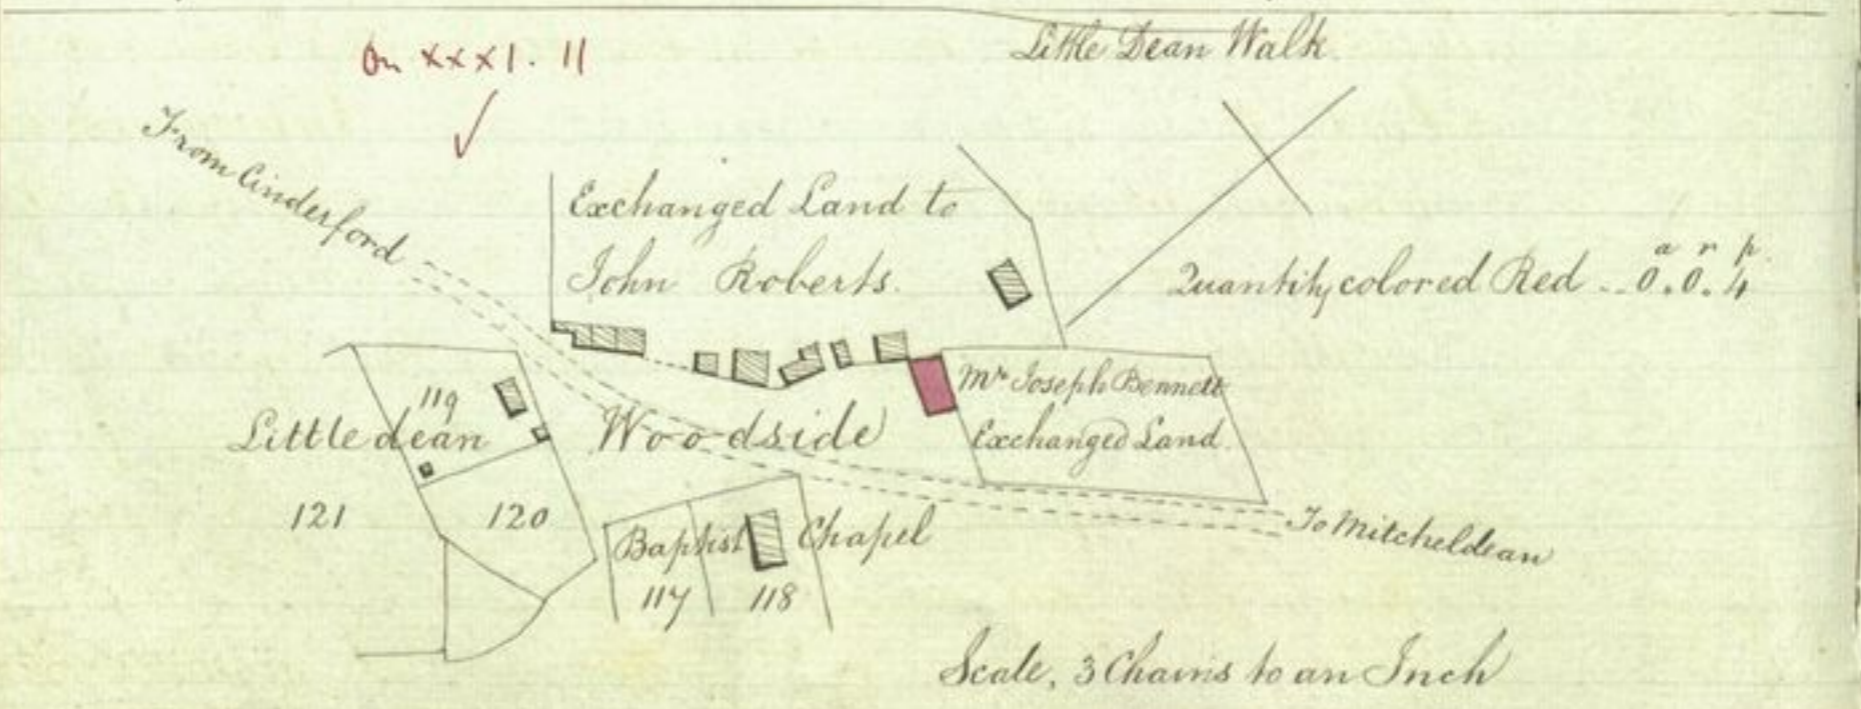 Little Dean Walk.
On xxx1. 11
From Cinderford
Exchanged Land to
John Roberts.
a r p.
Quantity colored Red -- 0.0.4
119
Mr Joseph Bennett
Exchanged Land.
Littledean Woodside
121
120
Baptist Chapel
117
118
To Mitcheldean
Scale, 3 Chains to an Inch